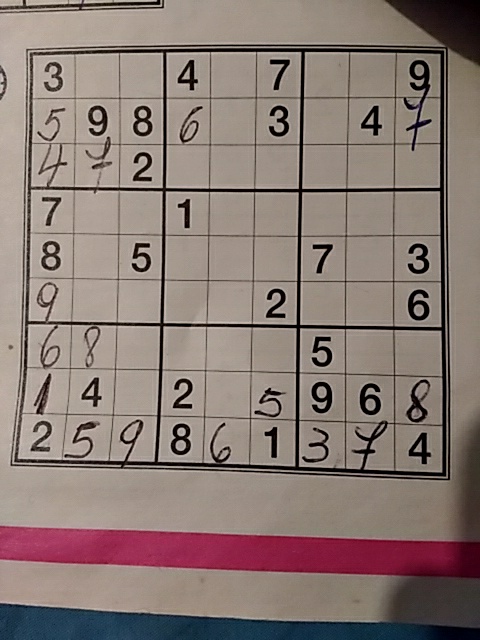 3 4 7 9
5 9 8 6 3 4 7
4 7 2
7 1
8 5 7 3
9 2 6
6 8 5
1 4 2 5 9 6 8
2 5 9 8 6 1 3 7 4